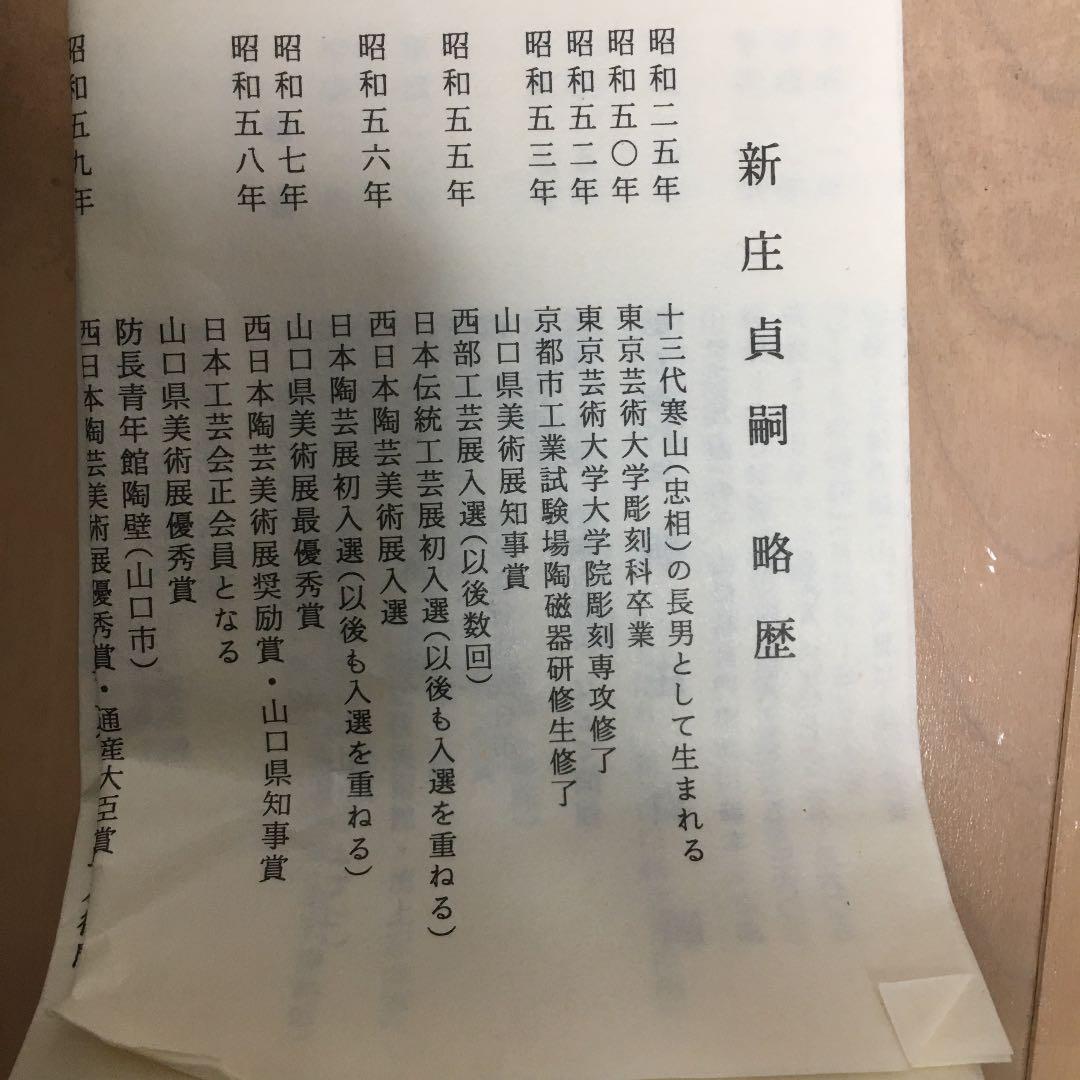 新庄貞嗣 略歴
昭和二五年 十三代寒山(忠相)の長男として生まれる
昭和五〇年 東京芸術大学彫刻科卒業
昭和五二年 東京芸術大学大学院彫刻専攻修了
昭和五三年 京都市工業試験場陶磁器研修生修了
山口県美術展知事賞
昭和五五年 西部工芸展入選(以後数回)
日本伝統工芸展初入選(以後も入選を重ねる)
昭和五六年 西日本陶芸美術展入選
日本陶芸展初入選(以後も入選を重ねる)
昭和五七年 山口県美術展最優秀賞
昭和五八年 西日本陶芸美術展奨励賞・山口県知事賞
日本工芸会正会員となる
山口県美術展優秀賞
防長青年館陶壁(山口市)
昭和五九年 西日本陶芸美術展優秀賞・通産大臣賞